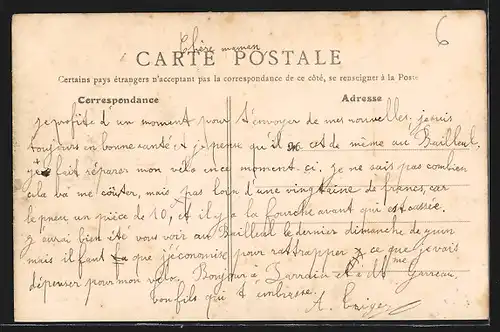 Chère maman
6
CARTE POSTALE
Certains pays étrangers n'acceptant pas la correspondance de ce côté, se renseigner à la Poste
Correspondance
Adresse
je profite d'un moment pour t'envoyer de mes nouvelles, je suis
toujours en bonne santé et je pense qu'il en est de même au Bailleul.
je fait réparer mon vélo en ce moment ci. je ne sais pas combien
cela va me couter, mais pas loin d'une vingtaine de francs, car
le pneu un pièce de 10, et il y a la fourche avant qui est cassée.
j'aurai bien été vous voir au Bailleul le dernier dimanche de juin
mais il faut que j'économise pour rattrapper ce que je vais
dépenser pour mon vélo. Bonjour à et à Mme
ton fils qui t'embrasse.
A.